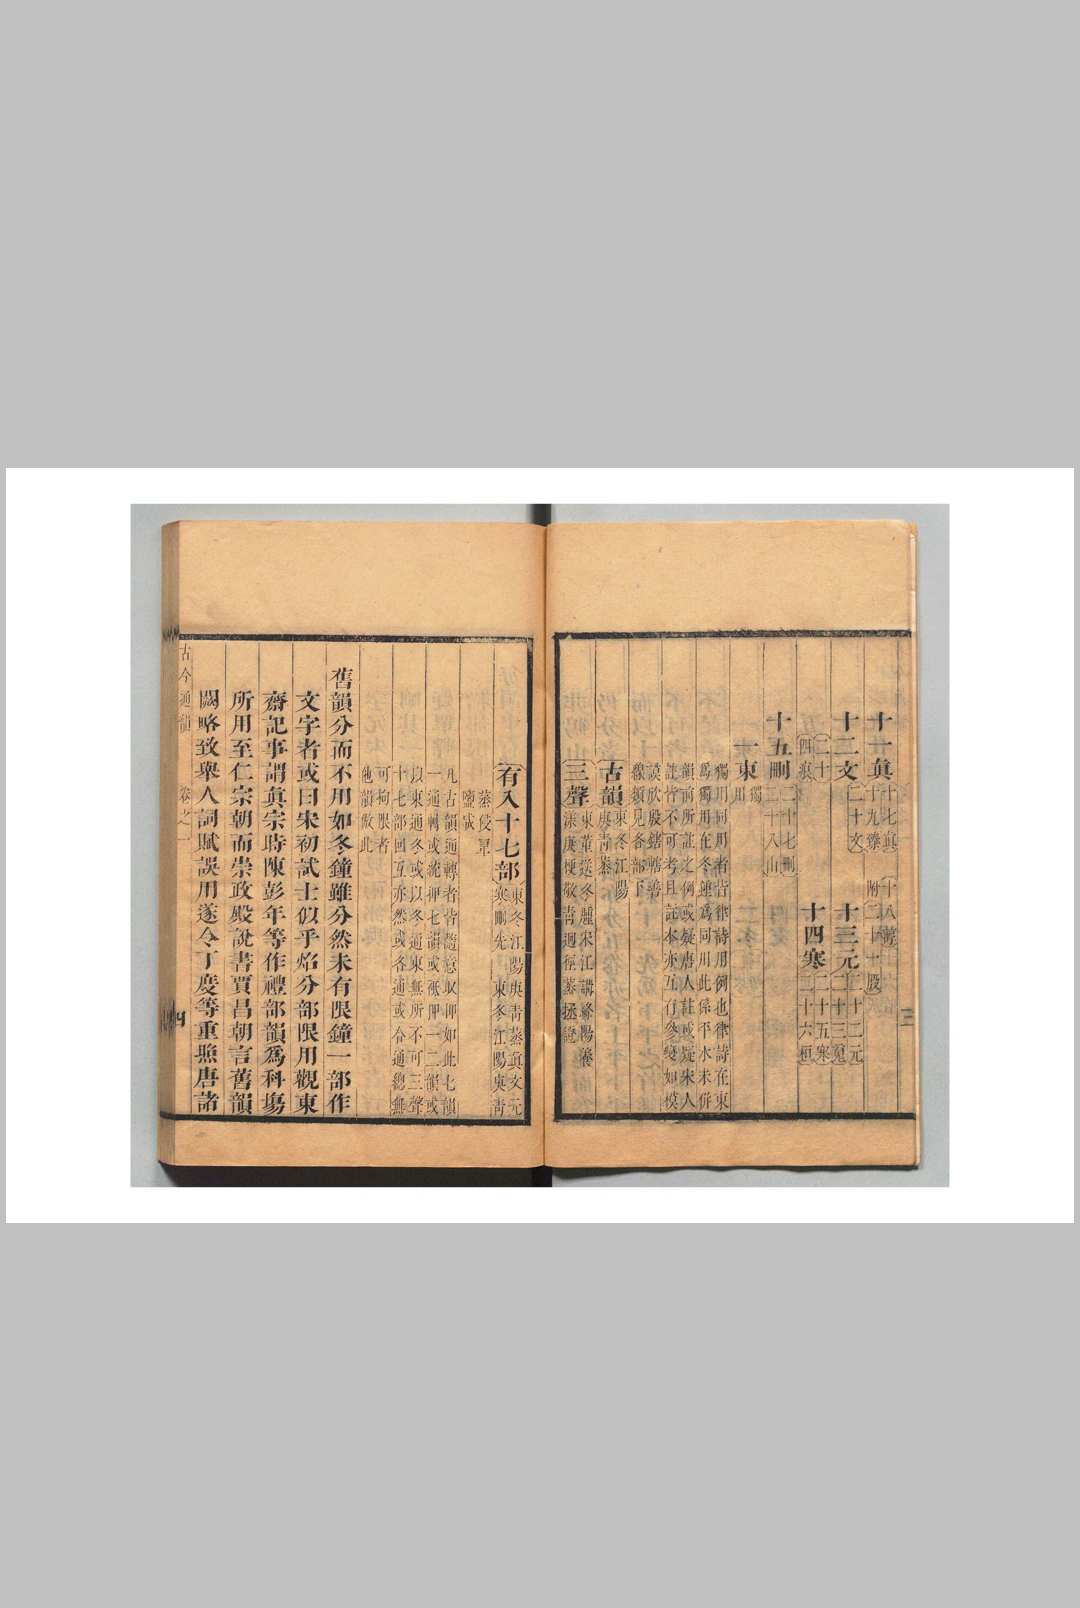 十一真 十七真 十八諄 十九臻 附二十一殷
十二文 二十文 十三元 二十二元 二十三䰟
二十 四痕 十四寒 二十五寒 二十六桓
十五刪 二十七刪 二十八山
一東 獨用
獨用同用者皆律詩用例也律詩在東
爲獨用在冬鍾爲同用此係平水未併
韻前所註之例或疑唐人註或疑宋人
註皆不可考且註本亦互有參變如模
諼欣殷鎋轄等
韻須見各部下
古韻 東冬江陽 庚青蒸
三聲 東董送冬腫宋江講絳陽養
漾庚梗敬青迥徑蒸拯證
有入十七部 東冬江陽庚青蒸真文元
寒刪先 東冬江陽庚青
蒸侵覃
鹽咸
凡古韻通轉者皆隨意取押如此七韻
一通轉或統押七韻或祗押一二韻或
以東通冬或以冬通東無所不可三聲
十七部回互亦然或各通或合通總無
可拘限者
他韻倣此
舊韻分而不用如冬鐘雖分然未有限鐘一部作
文字者或曰宋初試士似乎焰分部限用觀東
齋記事謂真宗時陳彭年等作禮部韻爲科塲
所用至仁宗朝而崇政殿說書賈昌朝言舊韻
闊略致舉人詞賦誤用遂令丁度等重照唐諸
古今通韻 卷之一